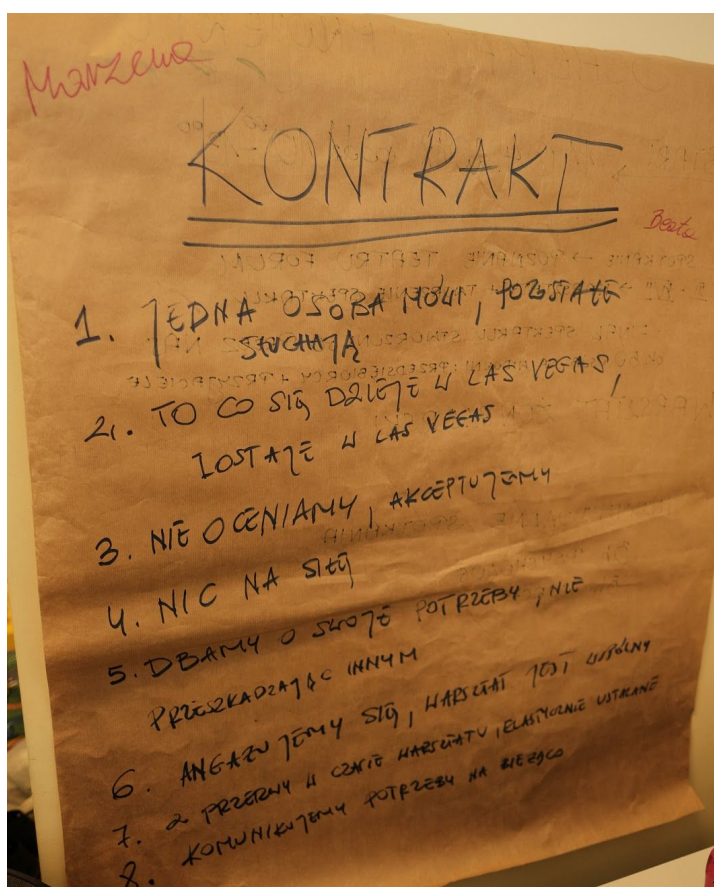 Marzena
KONTRAKT
Beata
1. JEDNA OSOBA MÓWI, POZOSTAŁE
SŁUCHAJĄ
2. TO CO SIĘ DZIEJE W LAS VEGAS,
ZOSTAJE W LAS VEGAS
3. NIE OCENIAMY, AKCEPTUJEMY
4. NIC NA SIŁĘ
5. DBAMY O SWOJE POTRZEBY, NIE
PRZESZKADZAJĄC INNYM
6. ANGAŻUJEMY SIĘ, WARSZTAT JEST WSPÓLNY
7. 2 PRZERWY W CZASIE WARSZTATU, ELASTYCZNIE USTALANE
8. KOMUNIKUJEMY POTRZEBY NA BIEŻĄCO